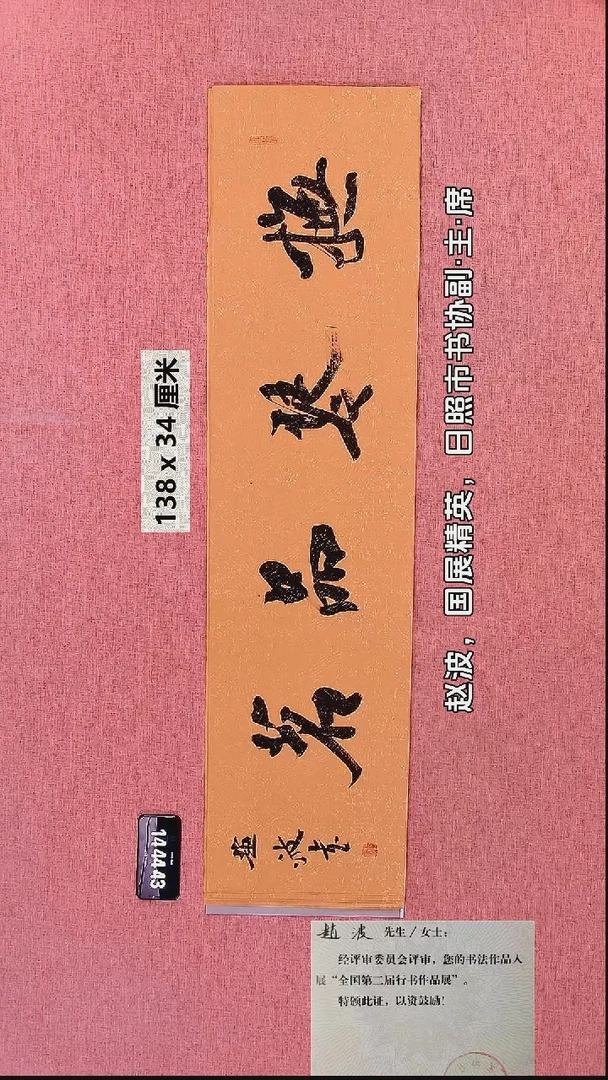 赵波，国展精英，日照市书协副·主·席
138 x 34 厘米
品
趙波書
144443
趙波 先生/女士：
经评审委员会评审，您的书法作品入
展“全国第二届行书作品展”。
特颁此证，以资鼓励！